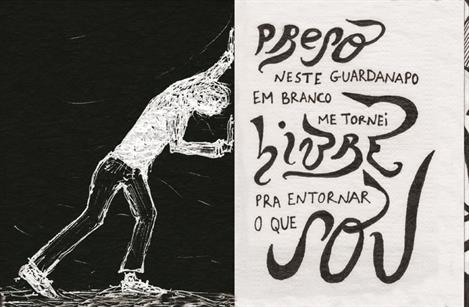 PRESO
NESTE GUARDANAPO
EM BRANCO
ME TORNEI
LIVRE
PRA ENTORNAR
O QUE
SOU